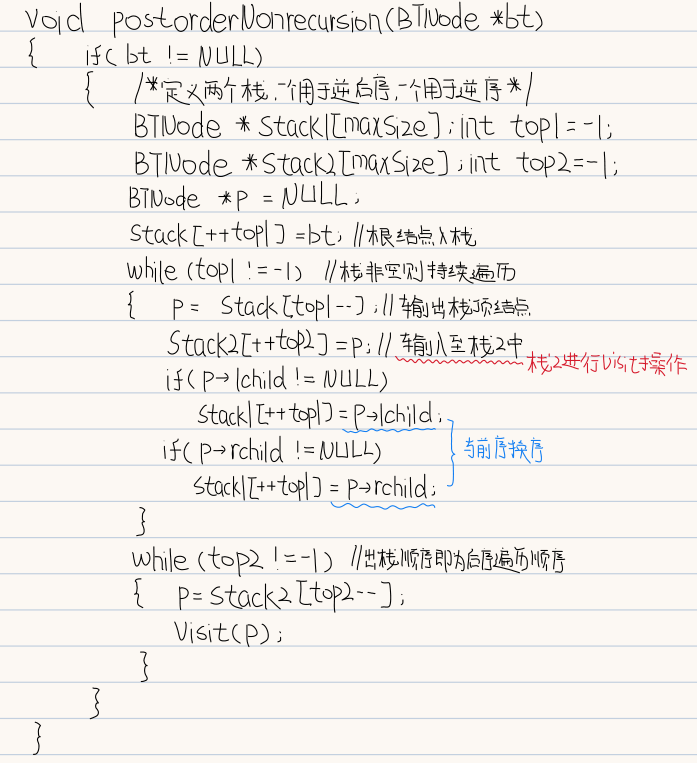 void postorderNonrecursion(BTNode *bt)
{ if( bt != NULL)
{ /*定义两个栈,一个用于逆后序,一个用于逆序*/
BTNode * Stack1[maxSize];int top1=-1;
BTNode *Stack2[maxSize];int top2=-1;
BTNode *p = NULL;
Stack[++top1]=bt; //根结点入栈
while (top1 !=-1) //栈非空则持续遍历
{ p = Stack[top1--]; //输出栈顶结点
Stack2[++top2]=p; //输入至栈2中 栈2进行Visit操作
if( p→lchild != NULL)
stack1[++top1]=p→lchild;
与前序换序
if( p→rchild !=NULL)
stack1[++top1]=p→rchild;
}
while (top2 !=-1) //出栈顺序即为后序遍历顺序
{ p=stack2[top2--];
Visit(p);
}
}
}